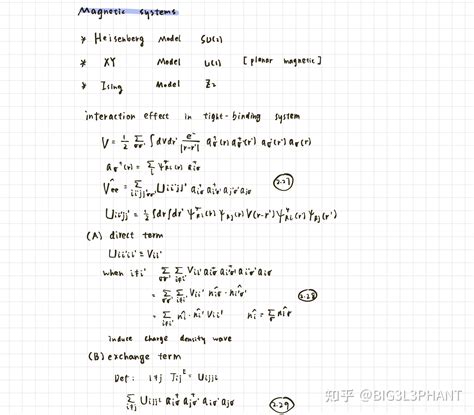 Magnetic systems
* Heisenberg Model SU(2)
* XY Model U(1) [planar magnetic]
* Ising Model Z₂
interaction effect in tight-binding system
V = 1/2 Σσσ' ∫drdr' e²/|r-r'| aσ†(r) aσ'†(r') aσ'(r') aσ(r)
aσ†(r) = Σi ψRi*(r) aiσ†
V̂ee = Σii'jj'σσ' Uii'jj' aiσ† ai'σ'† aj'σ' ajσ (2.27)
Uii'jj' = 1/2 ∫dr∫dr' ψRi*(r) ψRj(r) V(r-r') ψRi'*(r') ψRj'(r')
(A) direct term
Uii'ii' = Vii'
when i≠i' Σσσ' Σi≠i' Vii' aiσ† ai'σ'† ai'σ' aiσ
= Σσσ' Σi≠i' Vii' n̂iσ · n̂i'σ'
= Σi≠i' n̂i · n̂i' Vii' n̂i = Σσ n̂iσ (2.28)
induce charge density wave
(B) exchange term
Def: i≠j Jij = Uijji
Σi≠j Uijji aiσ† ajσ'† aiσ' ajσ (2.29)
知乎 @BIG3L3PHANT